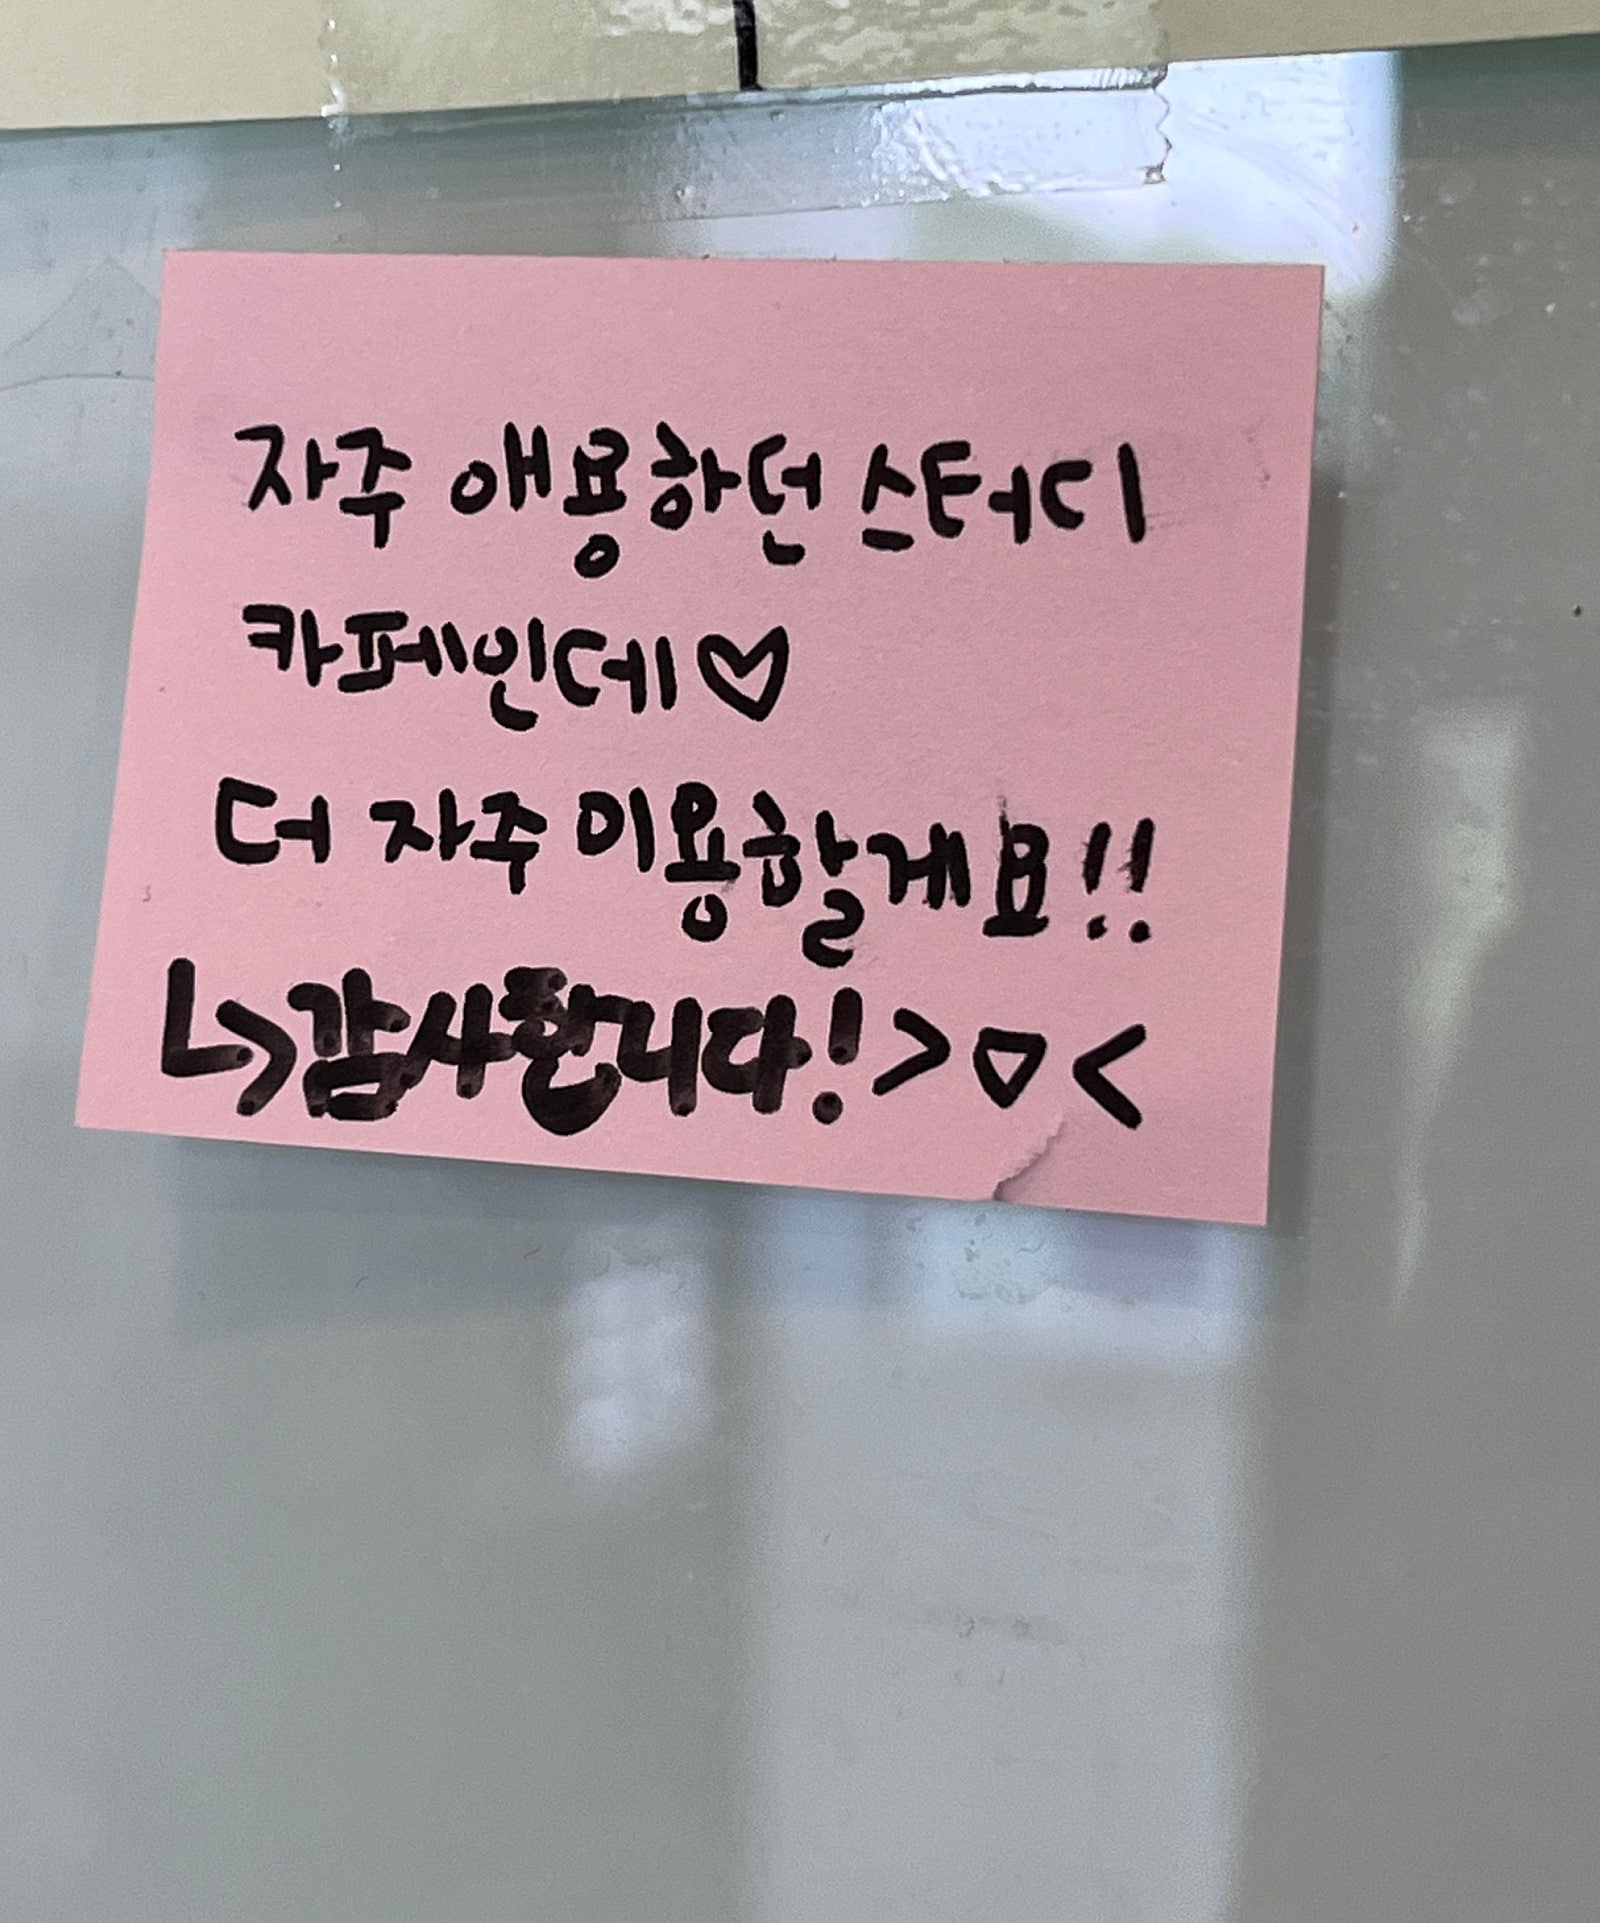 자주 애용하던 스터디
카페인데♡
더 자주 이용할게요!!
↳감사합니다!>▽<